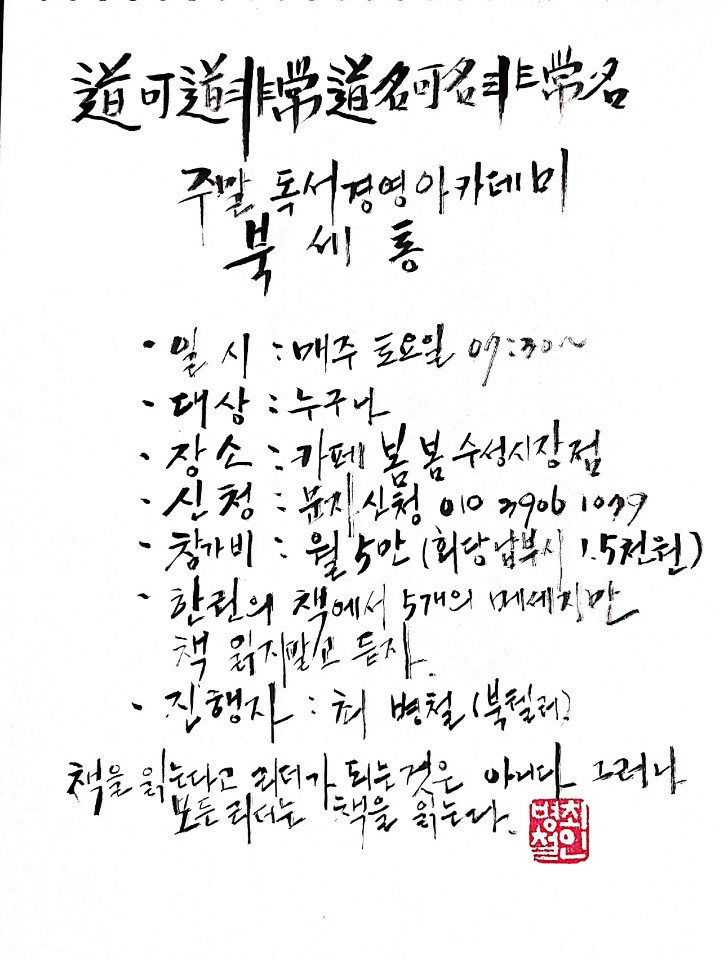 道可道非常道名可名非常名
주말 독서경영아카데미
북세통
· 일시 : 매주 토요일 07:30~
· 대상 : 누구나
· 장소 : 카페 봄봄 수성시장점
· 신청 : 문자신청 010 3906 1039
· 참가비 : 월 5만 (회당 납부시 1.5천원)
· 한권의 책에서 5개의 메세지만
책 읽지말고 듣자.
· 진행자 : 최병철 (북텔러)
책을 읽는다고 리더가 되는것은 아니다 그러나
모든 리더는 책을 읽는다.
최병철인